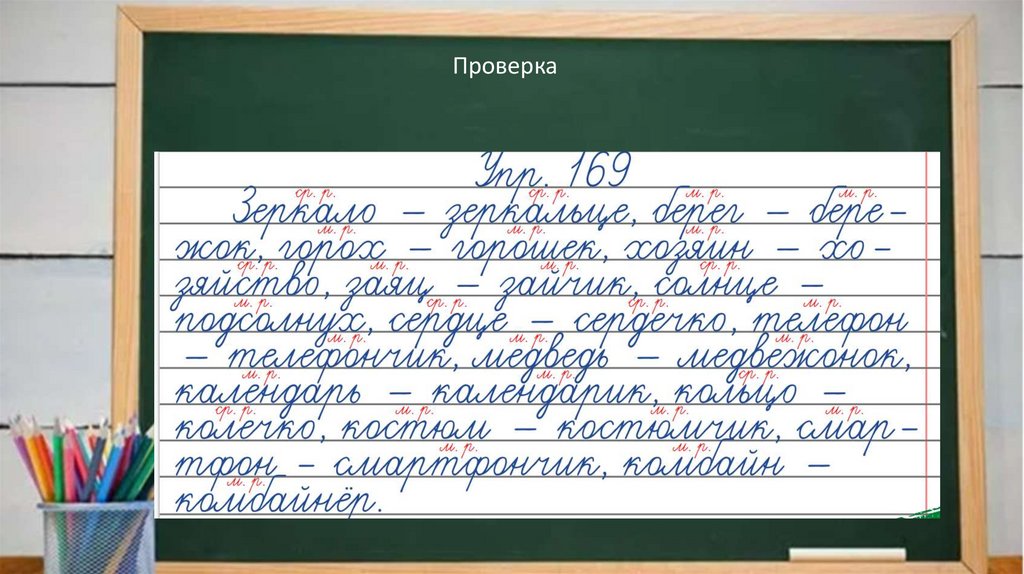 Проверка
Упр. 169
ср. р. ср. р. м. р. м. р.
Зеркало – зеркальце, берег – бере-
м. р. м. р. м. р.
жок, горох – горошек, хозяин – хо-
ср. р. м. р. м. р. ср. р.
зяйство, заяц – зайчик, солнце –
м. р. ср. р. ср. р. м. р.
подсолнух, сердце – сердечко, телефон
м. р. м. р. м. р.
– телефончик, медведь – медвежонок,
м. р. м. р. ср. р.
календарь – календарик, кольцо –
ср. р. м. р. м. р. м. р.
колечко, костюм – костюмчик, смар-
м. р. м. р.
тфон – смартфончик, комбайн –
м. р.
комбайнёр.